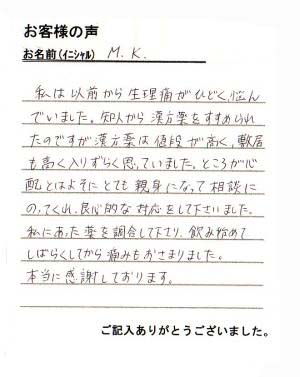 お客様の声
お名前(イニシャル) M.K.
私は以前から生理痛がひどく、悩ん
でいました。知人から漢方薬をすすめられ
たのですが漢方薬は値段が高く、敷居
も高く入りずらく思っていました。ところが心
配とはよそにとても親身になって相談に
のってくれ、良心的な対応をして下さいました。
私にあった薬を調合して下さり、飲み始めて
しばらくしてから痛みもおさまりました。
本当に感謝しております。
ご記入ありがとうございました。